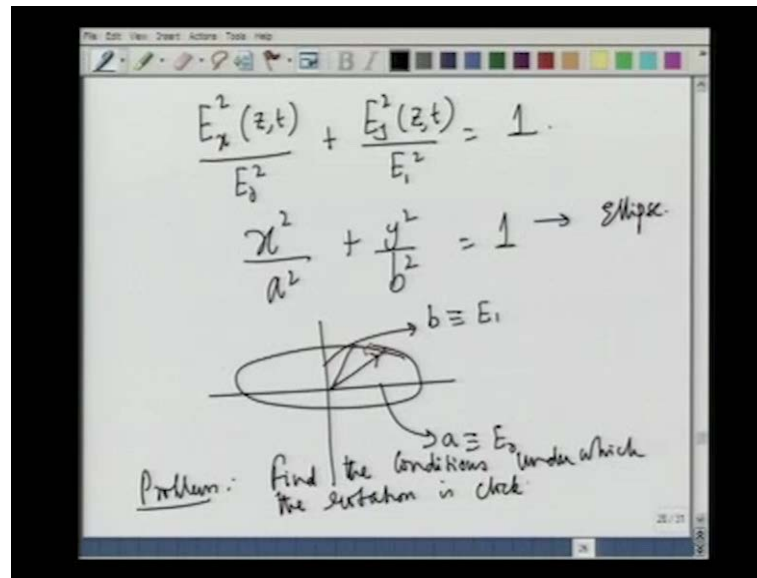 File Edit View Insert Actions Tools Help
B I
E_x^2 (z,t) / E_0^2 + E_y^2 (z,t) / E_1^2 = 1.
x^2 / a^2 + y^2 / b^2 = 1 → Ellipse.
b ≡ E_1
a ≡ E_0
Problem: find the conditions under which
the rotation is clock
26/31
26